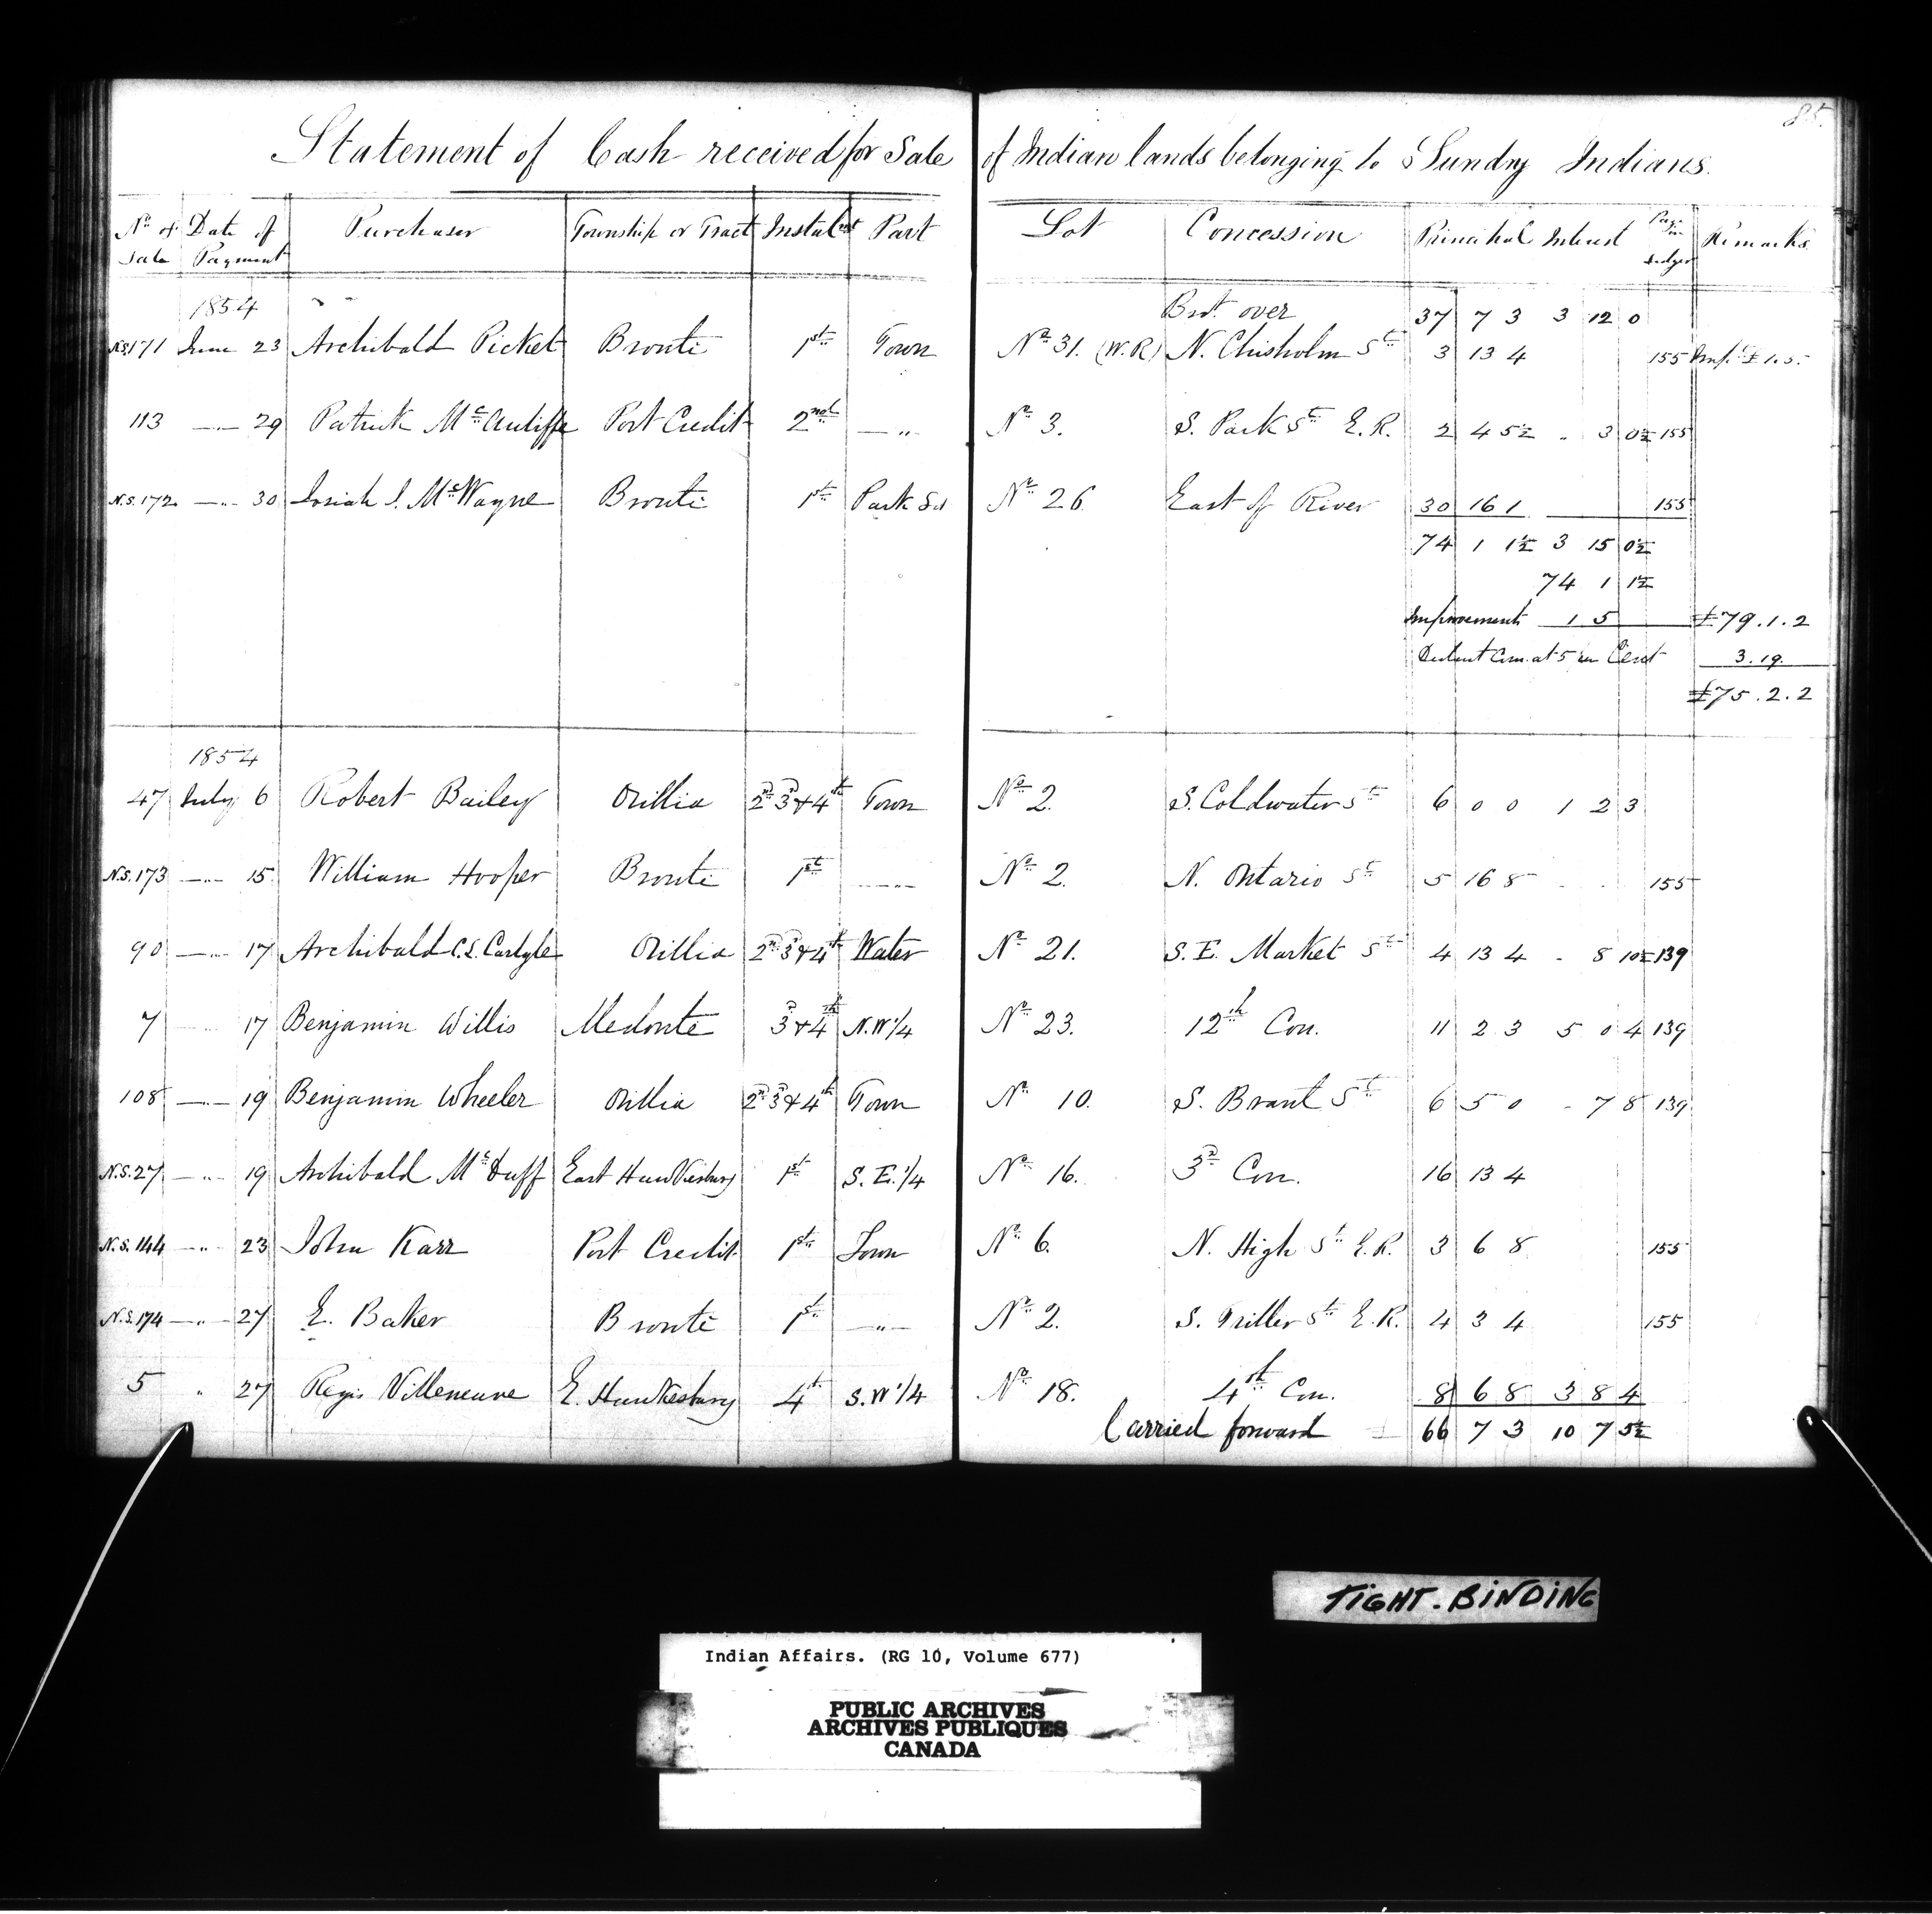 85.
Statement of Cash received for Sale of Indian lands belonging to Sundry Indians.
No of Sale Date of Payment Purchaser Township or Tract Instalmt Part Lot Concession Principal Interest Page in Ledger Remarks
1854 Brt. over 37 7 3 3 12 0
N.S. 171 June 23 Archibald Picket Bronte 1st Town No 31. (W.R) N. Chisholm St 3 13 4 155 Imp. £1.5.
113 —"— 29 Patrick McAuliffe Port Credit 2nd —"— No 3. S. Park St E.R. 2 4 5½ " 3 0½ 155
N.S. 172 —"— 30 Josiah I. McWayne Bronte 1st Park Lot No 26. East of River 30 16 1 155
74 1 1½ 3 15 0½
74 1 1½
Improvements 1 5 £79.1.2
Deduct Com. at 5 per Cent 3.19.
£75.2.2
1854
47 July 6 Robert Bailey Orillia 2nd 3d & 4th Town No 2. S. Coldwater St 6 0 0 1 2 3
N.S. 173 —"— 15 William Hooper Bronte 1st —"— No 2. N. Ontario St 5 16 8 155
90 —"— 17 Archibald C.S. Carlyle Orillia 2nd 3d & 4th Water No 21. S.E. Market St 4 13 4 - 8 10½ 139
7 —"— 17 Benjamin Willis Medonte 3d & 4th N.W 1/4 No 23. 12th Con. 11 2 3 5 0 4 139
108 —"— 19 Benjamin Wheeler Orillia 2nd 3d & 4th Town No 10. S. Brant St 6 5 0 - 7 8 139
N.S. 27 —"— 19 Archibald McDuff East Hawkesbury 1st S.E. 1/4 No 16. 3d Con. 16 13 4
N.S. 144 —"— 23 John Karr Port Credit 1st Town No 6. N. High St E.R. 3 6 8 155
N.S. 174 —"— 27 E. Baker Bronte 1st —"— No 2. S. Triller St E.R. 4 3 4 155
5 " 27 Regis Villeneuve E. Hawkesbury 4th S.W 1/4 No 18. 4th Con. 8 6 8 3 8 4
Carried forward 66 7 3 10 7 5½
TIGHT-BINDING
Indian Affairs. (RG 10, Volume 677)
PUBLIC ARCHIVES
ARCHIVES PUBLIQUES
CANADA